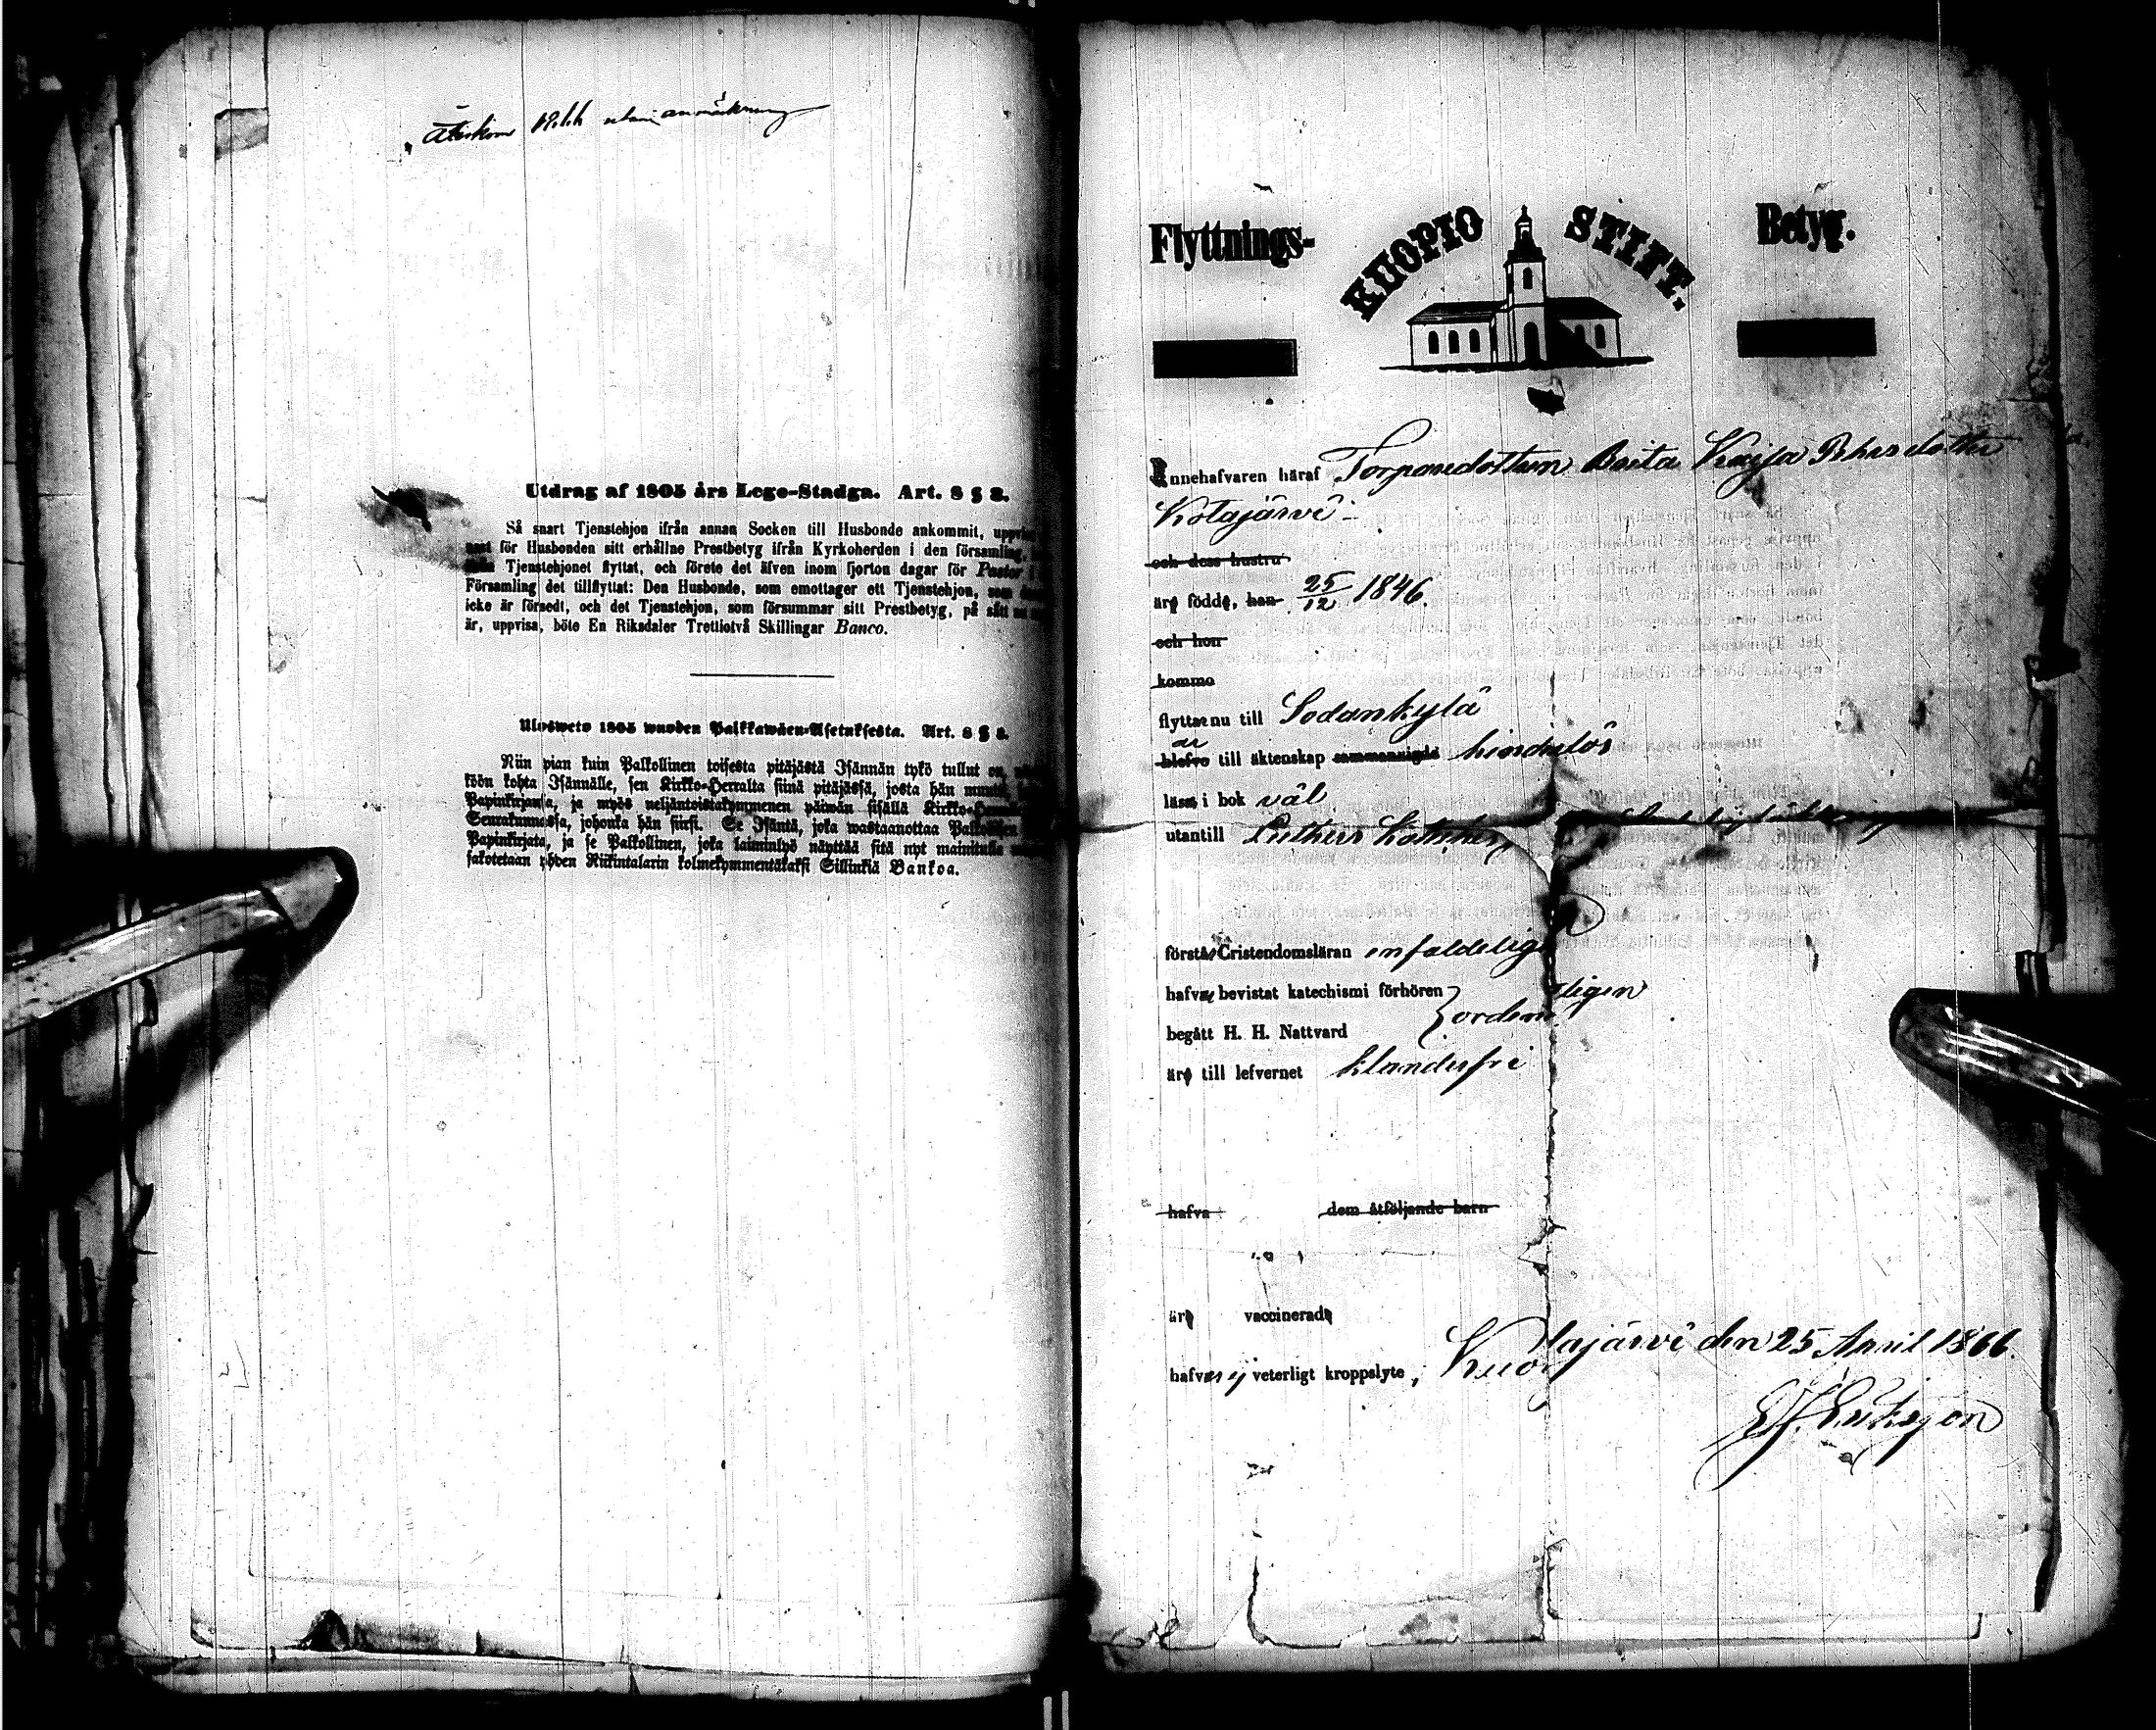 Återkom 1866 utan anmärkning
Utdrag af 1805 års Lego-Stadga. Art. 8 § 2.
Så snart Tjenstehjon ifrån annan Socken till Husbonde ankommit,
för Husbonden sitt erhållne Prestbetyg ifrån Kyrkoherden i den församling,
Tjenstehjonet flyttat, och förete det äfven inom fjorton dagar för Pastor
Församling det tillflyttat: Den Husbonde, som emottager ett Tjenstehjon, som
icke är försedt, och det Tjenstehjon, som försummar sitt Prestbetyg, på sätt
är, uppvisa, böte En Riksdaler Trettiotvå Skillingar Banco.
Ulosweto 1805 wuoden Palkkawäen-Asetuksesta. Art. 8 § 2.
Niin pian kuin Palkollinen toisesta pitäjästä Isännän tykö tullut on,
köön kohta Isännälle, sen Kirkko-Herralta siinä pitäjässä, josta hän
Papinkirjansa, ja myös neljäntoistakymmenen päiwän sisällä Kirkko-
Seurakunnassa, johonka hän siirsi. Se Isäntä, joka wastaanottaa
Papinkirjata, ja se Palkollinen, joka laiminlyö näyttää sitä nyt mainitulla
sakotetaan yhden Riikintalarin kolmekymmentäkaksi Sillinkiä Bankoa.
Flyttnings- KUOPIO STIFT. Betyg.
Innehafvaren häraf Torparedottern Brita Kajsa Pehrsdotter
Kotajärvi
och dess hustru
äro födde, han 25/12 1846.
och hon
komme
flyttar nu till Sodankylä
är
blefvo till äktenskap sammanvigde hinderlös
läser i bok väl
utantill Luthers
förstår Cristendomsläran enfaldeligen
hafver bevistat katechismi förhören
ordentligen
begått H. H. Nattvard
äro till lefvernet klanderfri
hafva dem åtföljande barn
äro vaccinerade
hafver ej veterligt kroppslyte, Kuolajärvi den 25 April 1866.